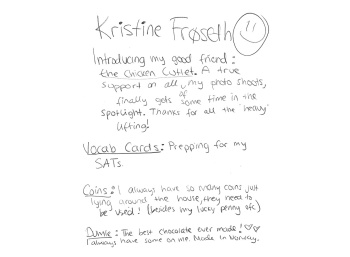 Kristine Frøseth
Introducing my good friend:
the Chicken Cutlet. A true
support on all of my photo shoots,
finally gets some time in the
spotlight. Thanks for all the "heavy"
lifting!
Vocab Cards: Prepping for my
SATs
Coins: I always have so many coins just
lying around the house, they need to
be used! (besides my lucky penny ofc)
The best chocolate ever made! ♡♡
I always have some on me. Made in Norway.